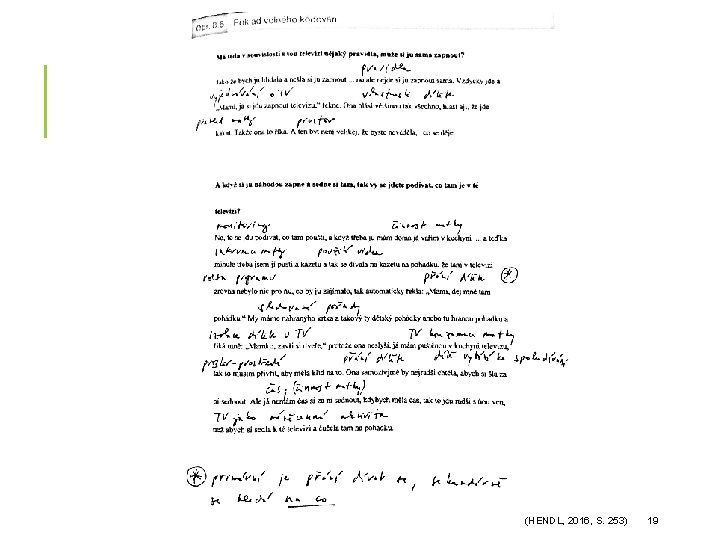 Obr. 8.6 Příklad volného kódování
Má tedy v souvislosti s tou televizí nějaký pravidla, může si ju sama zapnout?
pravidla
Jako že bych ju hlídala a nešla si ju zapnout ... no ale nejde si ju zapnout sama. Vždycky jde a
vyjednávání o TV vlastnosti dítěte
„Mami, já si jdu zapnout televizu," řekne. Ona hlásí většinou tak všechno, hlásí aji, že jde
přehled matky prostor
Takže ona to říká. A ten byt není velikej, že byste nevěděla, co se děje.
A když si ju náhodou zapne a sedne si tam, tak vy se jdete podívat, co tam je v té
televizi?
monitoring činnost matky
No, to se jdu podívat, co tam pouští, a když třeba ju mám doma já vařím v kuchyni ... a teďka
intervence matky použití videa
minule třeba jsem jí pustila kazetu a tak se dívala na kazetu na pohádku, že tam v televizi
volba programu přání dítěte *
zrovna nebylo nic pro ňu, co by ju zajímalo, tak automaticky řekla: „Mama, dej mně tam
sledované pořady
pohádku." My máme nahranýho krtka a takový ty dětský pohádky anebo tu hranou pohádku a
izolace dítěte u TV TV konzumace matky
říká mně: „Mamko, zavři si dveře," protože ona neslyší, já mám puštěnou v kuchyni televizu,
prostor-prostředí přání dítěte dítě vybírá ke spoludívání
tak to musím přivřít, aby měla klid na to. Ona samozřejmě by nejradši chtěla, abych si šla za
čas, (činnost matky)
ní sednout. Ale já nemám čas si za ní sednout, kdybych měla čas, tak to jdu radši s ňou ven,
TV jako aktivita
než abych si sedla k té televizi a čučela tam na pohádku.
* primární je přání dívat se, sekundárně
se hledá na co
(HENDL, 2016, S. 253) 19